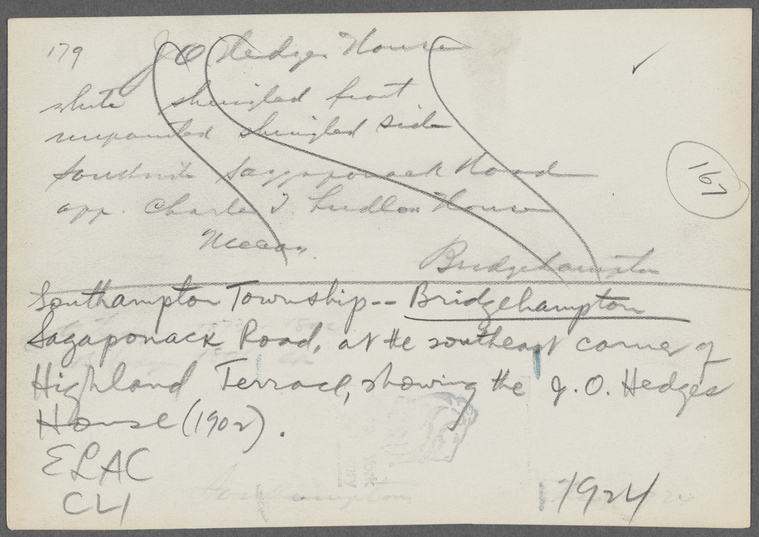 179 J O Hedges House
white shingled front
unpainted shingled side
Southside Saggaponack Road
opp. Charles T. Ludlow House
Mecox.
Bridgehampton
167
Southampton Township -- Bridgehampton
Sagaponack Road, at the southeast corner of
Highland Terrace, showing the J. O. Hedges
House (1902).
ELAC
CLI
1924